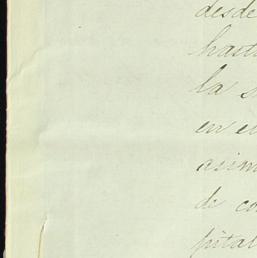 desde
hast
la s
en e
asim
de co
pital